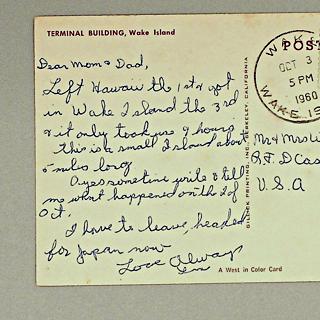 TERMINAL BUILDING, Wake Island
Dear Mom & Dad,
Left Hawaii the 1st & got
in Wake Island the 3rd
& it only took us 9 hours
this is a small Island about
5 miles long
O yes sometime write & tell
me what happened on the 2 of
Oct.
I have to leave, headed
for Japan now
Love Always
WAKE
OCT 3
5 PM
1960
WAKE IS
POST
Mr & Mrs
R.F.D Cas
U.S.A
GILLICK PRINTING, INC., BERKELEY, CALIFORNIA
A West in Color Card